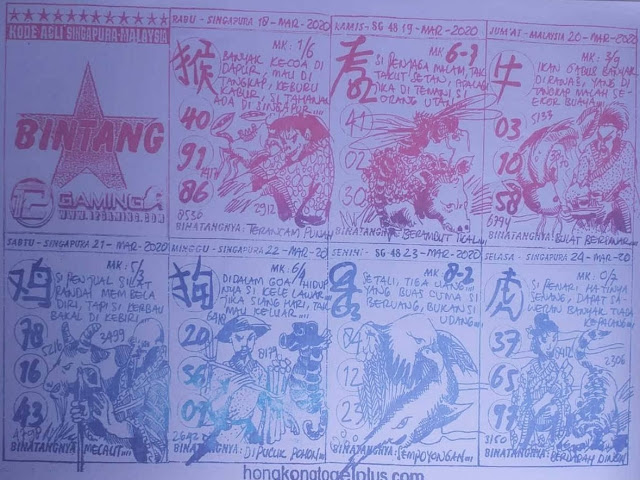 KODE ASLI SINGAPURA-MALAYSIA
BINTANG
12 GAMING
WWW.12GAMING.COM
RABU - SINGAPURA 18 - MAR - 2020
MK : 1/6
猴
BANYAK KECOA DI
DAPUR, MAU DI
TANGKAP, KEBURU
KABUR
ADA DI SINGAPUR....
40
91
86
8536
2912
BINATANGNYA : TERANCAM PUNAH
KAMIS - SG 48 19 - MAR - 2020
MK 6-3
SI PENJAGA MALAM, TAK
TAKUT SETAN, APALAGI
JIKA DI TEMANI SI
ORANG UTAN
41
02
30
BINATANGNYA : BERAMBUT IKAL....
JUM'AT - MALAYSIA 20 - MAR - 2020
MK : 3/9
牛
IKAN GABUR BANYAK
DI RAWAS, YANG DI
TANGKAP MALAH SE-
EKOR BUAYA....
5133
03
10
58
6794
BINATANGNYA :
SABTU - SINGAPURA 21 - MAR - 2020
MK : 5/3
鸡
SI PENJUAL SILAT
PANDAI MEMBELA
DIRI, TAPI SI KERBAU
BAKAL DI KEBIRI
78
5216
3499
16
43
BINATANGNYA : MELAUT....
MINGGU - SINGAPURA 22 - MAR - 20
MK : 6/
狗
DIDALAM GOA HIDUP
NYA SI KELELAWAR....
JIKA SIANG HARI, TAK
MAU KELUAR....
20
8179
56
09
2692
BINATANGNYA : DI PUCUK POHON....
SENIN - SG 48 23 - MAR - 2020
MK 8-2
SETALI, TIGA UANG....
YANG BUAS CUMA SI
BERUANG, BUKAN SI
UDANG....
04
12
23
BINATANGNYA : TEMPOYONGAN....
SELASA - SINGAPURA 24 - MAR - 20
MK : 0/2
虎
SI PENARI HATINYA
SENANG, DAPAT SA-
WERAN BANYAK TIADA
37
2306
65
97
3150
BINATANGNYA : BERDARAH DINGIN
hongkongtogelplus.com